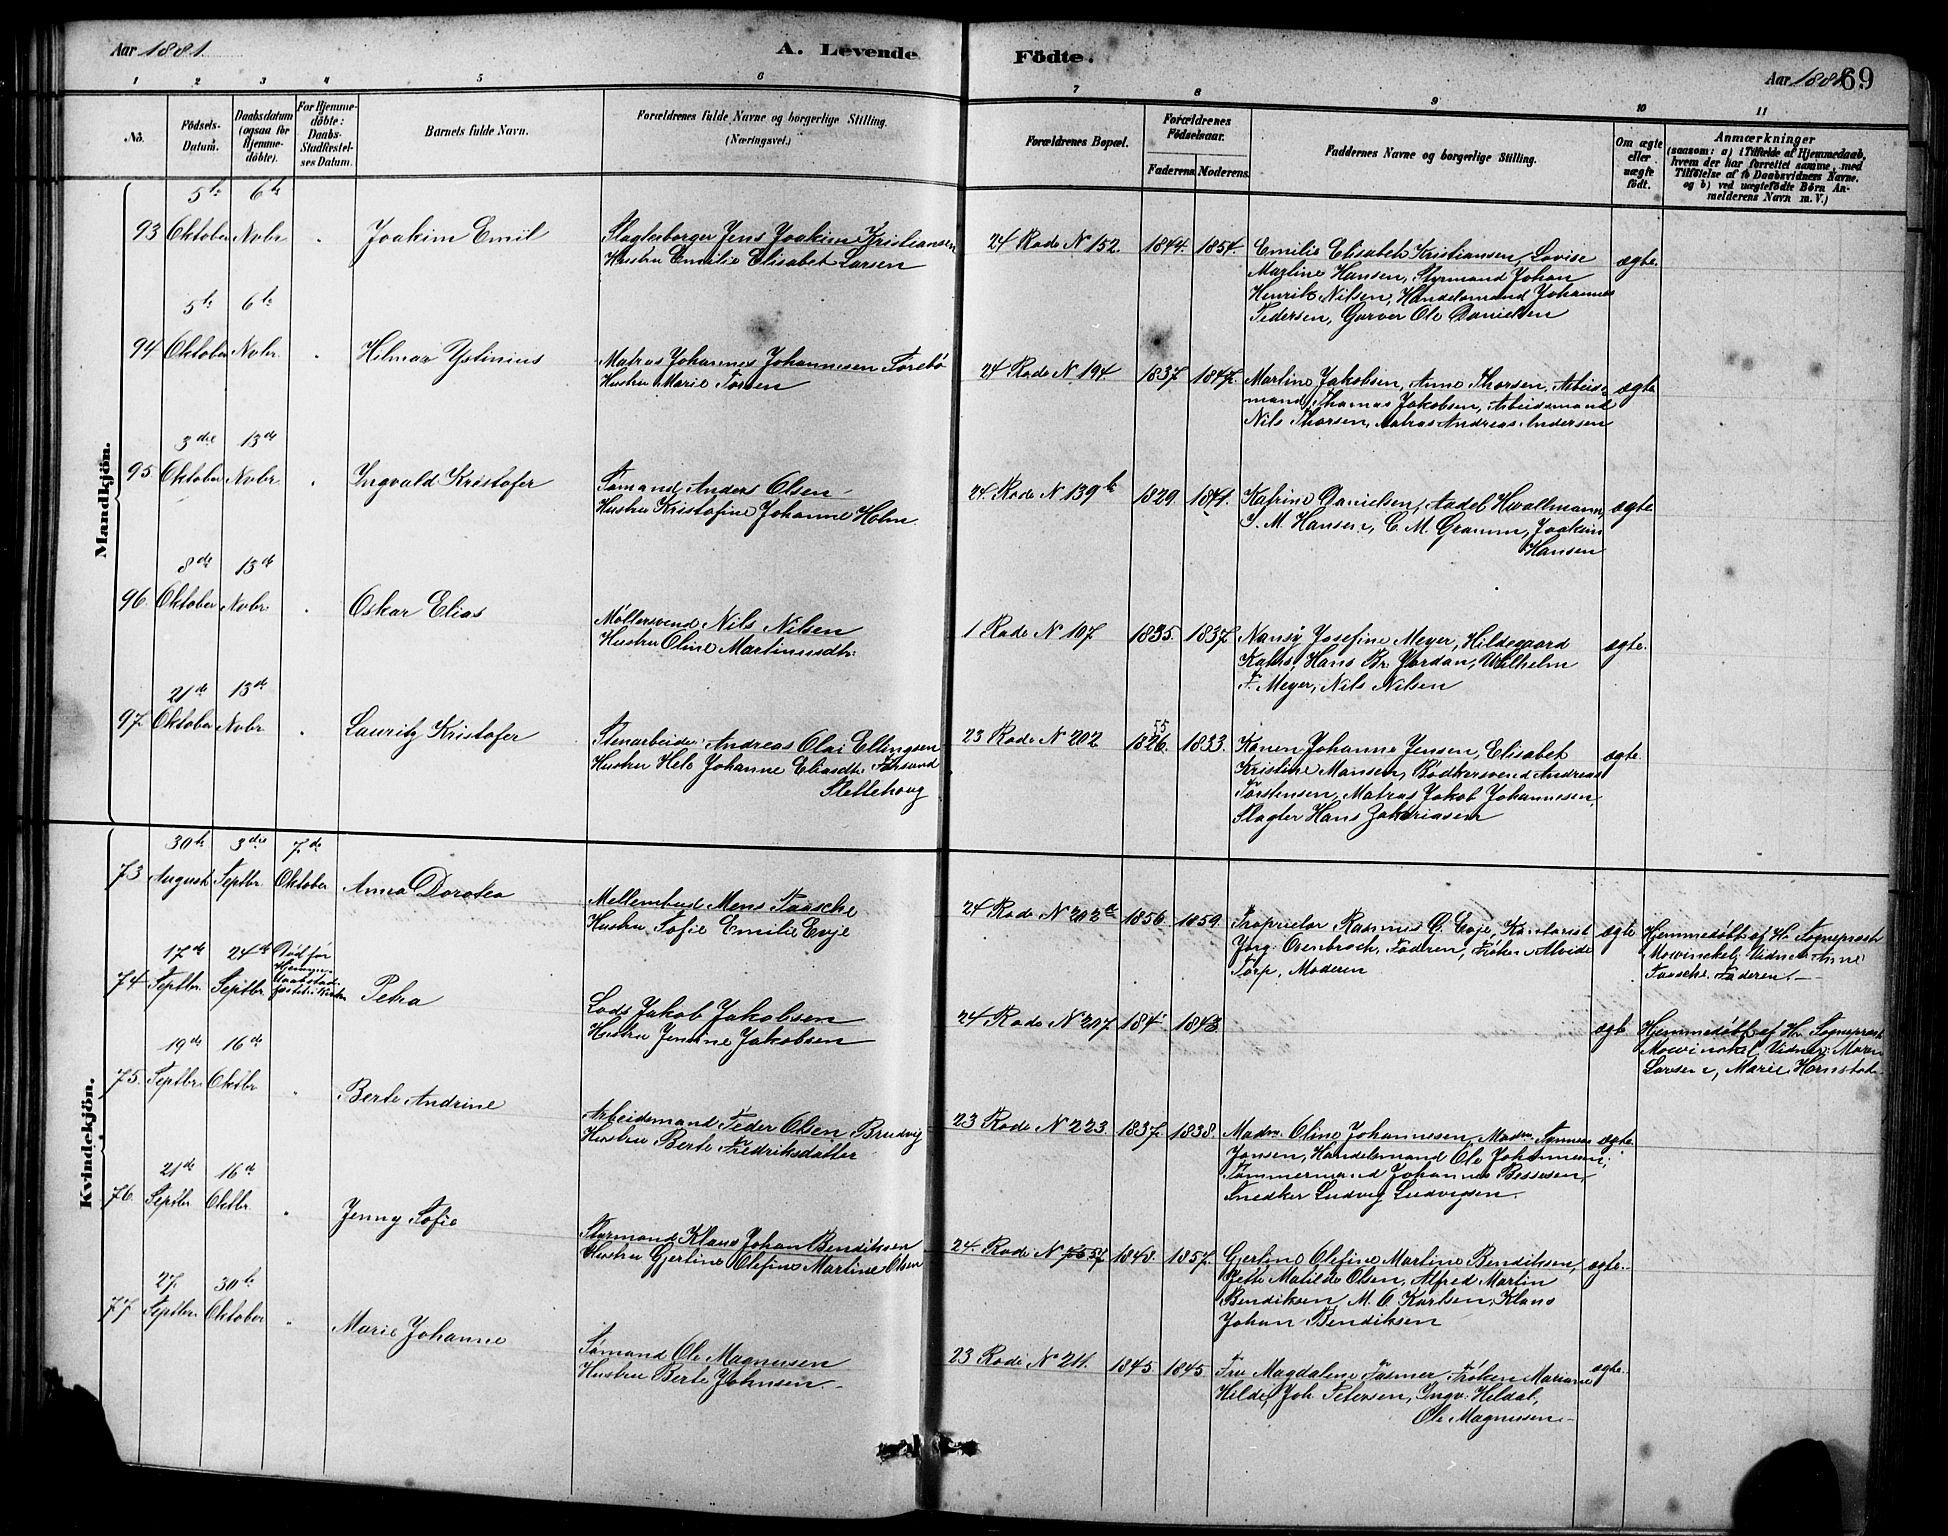 Aar 1881.
A. Levende
Födte.
Aar 1881
69
1 2 3 4 5 6 7 8 9 10 11
No.
Födsels-
Datum.
Daabsdatum
(ogsaa for
Hjemme-
døbte).
For Hjemme-
døbte:
Daabs-
Stadfæstel-
ses Datum.
Barnets fulde Navn.
Forældrenes fulde Navne og borgerlige Stilling.
(Næringsvei.)
Forældrenes Bopæl.
Forældrenes
Födselsaar.
Faderens. Moderens.
Faddernes Navne og borgerlige Stilling.
Om ægte
eller
uægte
födt.
Anmærkninger
(saasom: a) i Tilfælde af Hjemmedaab,
hvem der har forrettet samme, med
Tilföielse af to Daabsvidners Navne.
og b) ved uægtefödte Börn An-
melderens Navn m. V.)
Mandkjön.
5te 6te
93 Oktober Novbr Joakim Emil
Slagterborger Jens Joakim Kristiansen
Hustru Emilie Elisabet Larsen
24 Rode N 152. 1844. 1854.
Emilie Elisabeth Kristiansen, Lovise
Martine Hansen, Styrmand Johan
Henrik Nilsen, Handelsmand Johannes
Pedersen, Garver Ole Danielsen
ægte.
5te 6te
94 Oktober Novbr. Hilmar Ystinius
Matros Johannes Johannesen Torebø
Hustru Marie Torsen
24 Rode N 194. 1837. 1847.
Martine Jakobsen, Anne Thorsen, Arbeids-
mand Thomas Jakobsen, Arbeidsmand
Nils Thorsen, Matros Andreas Andersen
ægte
3die 13de
95 Oktober Novbr. Ingvald Kristofer
Sømand Anders Olsen
Hustru Kristofine Johanne Holm
24 Rode N 139b 1829. 1841.
Katrine Danielsen, Aadel Hwallmann,
J. M. Hansen, C. M. Gramm, Joakim
Hansen
ægte.
8de 13de
96. Oktober Novbr. Oskar Elias
Møllersvend Nils Nilsen
Hustru Oline Martinusdtr.
1 Rode N 107 1835. 1837.
Nansy Josefine Meyer, Hildegaard
Kahrs, Hans Br. Jordan, Wilhelm
F. Meyer, Nils Nilsen
ægte.
21de 13de
97. Oktober Novbr. Lauritz Kristofer
Stenarbeider Andreas Olai Ellingsen
Hustru Hele Johanne Eliasdtr. Farsund
Slettehaug
23 Rode N 202 1826. 55 1833.
Karen Johanne Jensen, Elisabet
Kristine Mansen, Bødkersvend Andreas
Torstensen, Matros Jakob Johannesen,
Slagter Hans Zakariasen
ægte.
Kvindekjön.
30te 3die 7de
73 August Septbr. Oktober Anna Dorotea
Mellembud Mens Taasche
Hustru Sofie Emilie Evje
24 Rode N 202 1856. 1859.
Proprietær Rasmus G. Evje, Kontorist
Jørg. Overbroch, Faderen, Frøken Alvide
Torp, Moderen
ægte
Hjemmedøbt af Hr. Sogneprest
Mowinckel, Vidner: Anne
Taasche, Faderen.
17de 24de Død før
74 Septbr. Septbr. Petra
Lods Jakob Jakobsen
Hustru Jensine Jakobsen
24 Rode N 207 184 1843.
ægte
Hjemmedøbt af Hr. Sogneprest
Mowinckel, Vidner: Maren
Larsen, Marie
19de 16de
75. Septbr. Oktbr. Berte Andrine
Arbeidsmand Peder Olsen Brudvig
Hustru Berte Fredriksdatter
23 Rode N 223. 1837. 1838.
Madm. Oline Johannesen, Madm.
Jansen, Handelsmand Ole Johannesen,
Tømmermand Johannes Bessesen,
Snedker Ludvig Ludvigsen.
ægte.
21de 16de
76. Septbr. Oktbr. Jenny Sofie
Styrmand Klaus Johan Bendiksen
Hustru Gjertine Olefine Martine Olsen
24. Rode N 57 1848. 1857.
Gjertine Olefine Martine Bendiksen,
Jette Matilde Olsen, Alfred Martin
Bendiksen, M. O. Karlsen, Klaus
Johan Bendiksen
ægte.
27. 30te
77. Septbr. Oktober Marie Johanne
Sømand Ole Magnusen
Hustru Berte Johnsen.
23 Rode N 211. 1845. 1845.
Fru Magdalene Fasmer, Frøken Mariane
Hilde, Joh. Petersen, Ingv. Hildal,
Ole Magnusen
ægte.